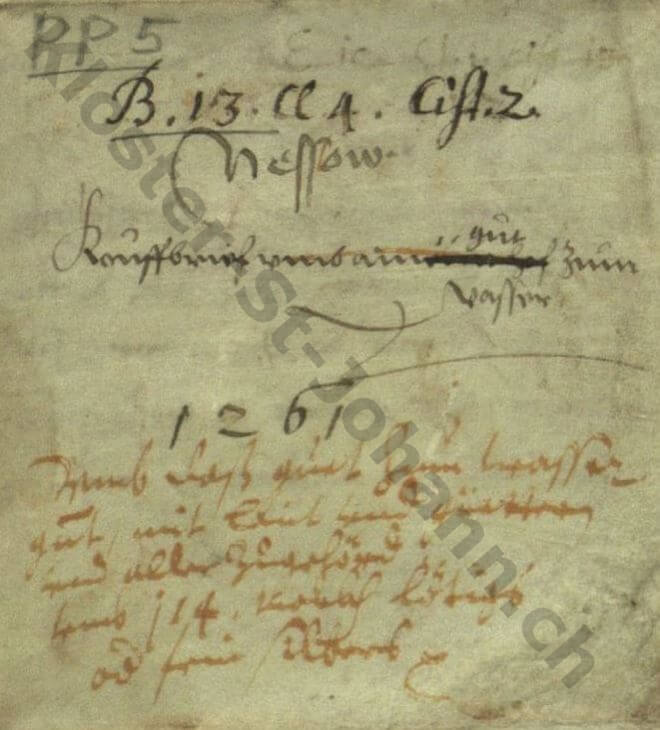 PP 5
B. 13. Cl 4. Cist. 2.
Nessow
Kauffbrief umb ain gut zum
wasser
1261
Umb dass guet zum wasser
gut, mit Leut und güettern
und aller zugehörd
umb 114. march lötigs
od fein silbers
Kloster-St-Johann.ch